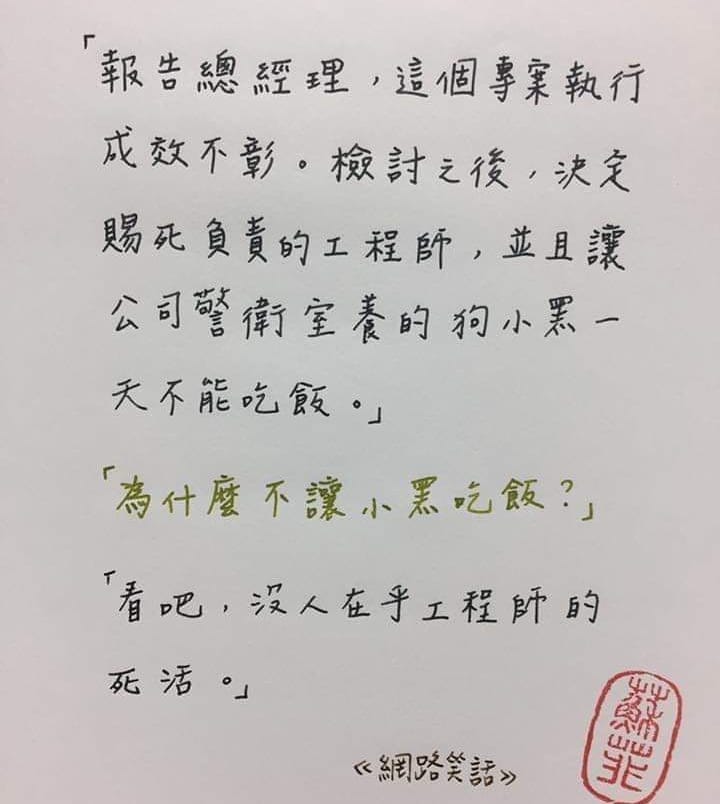 「報告總經理，這個專案執行
成效不彰。檢討之後，決定
賜死負責的工程師，並且讓
公司警衛室養的狗小黑一
天不能吃飯。」
「為什麼不讓小黑吃飯？」
「看吧，沒人在乎工程師的
死活。」
《網路笑話》
蘇芷